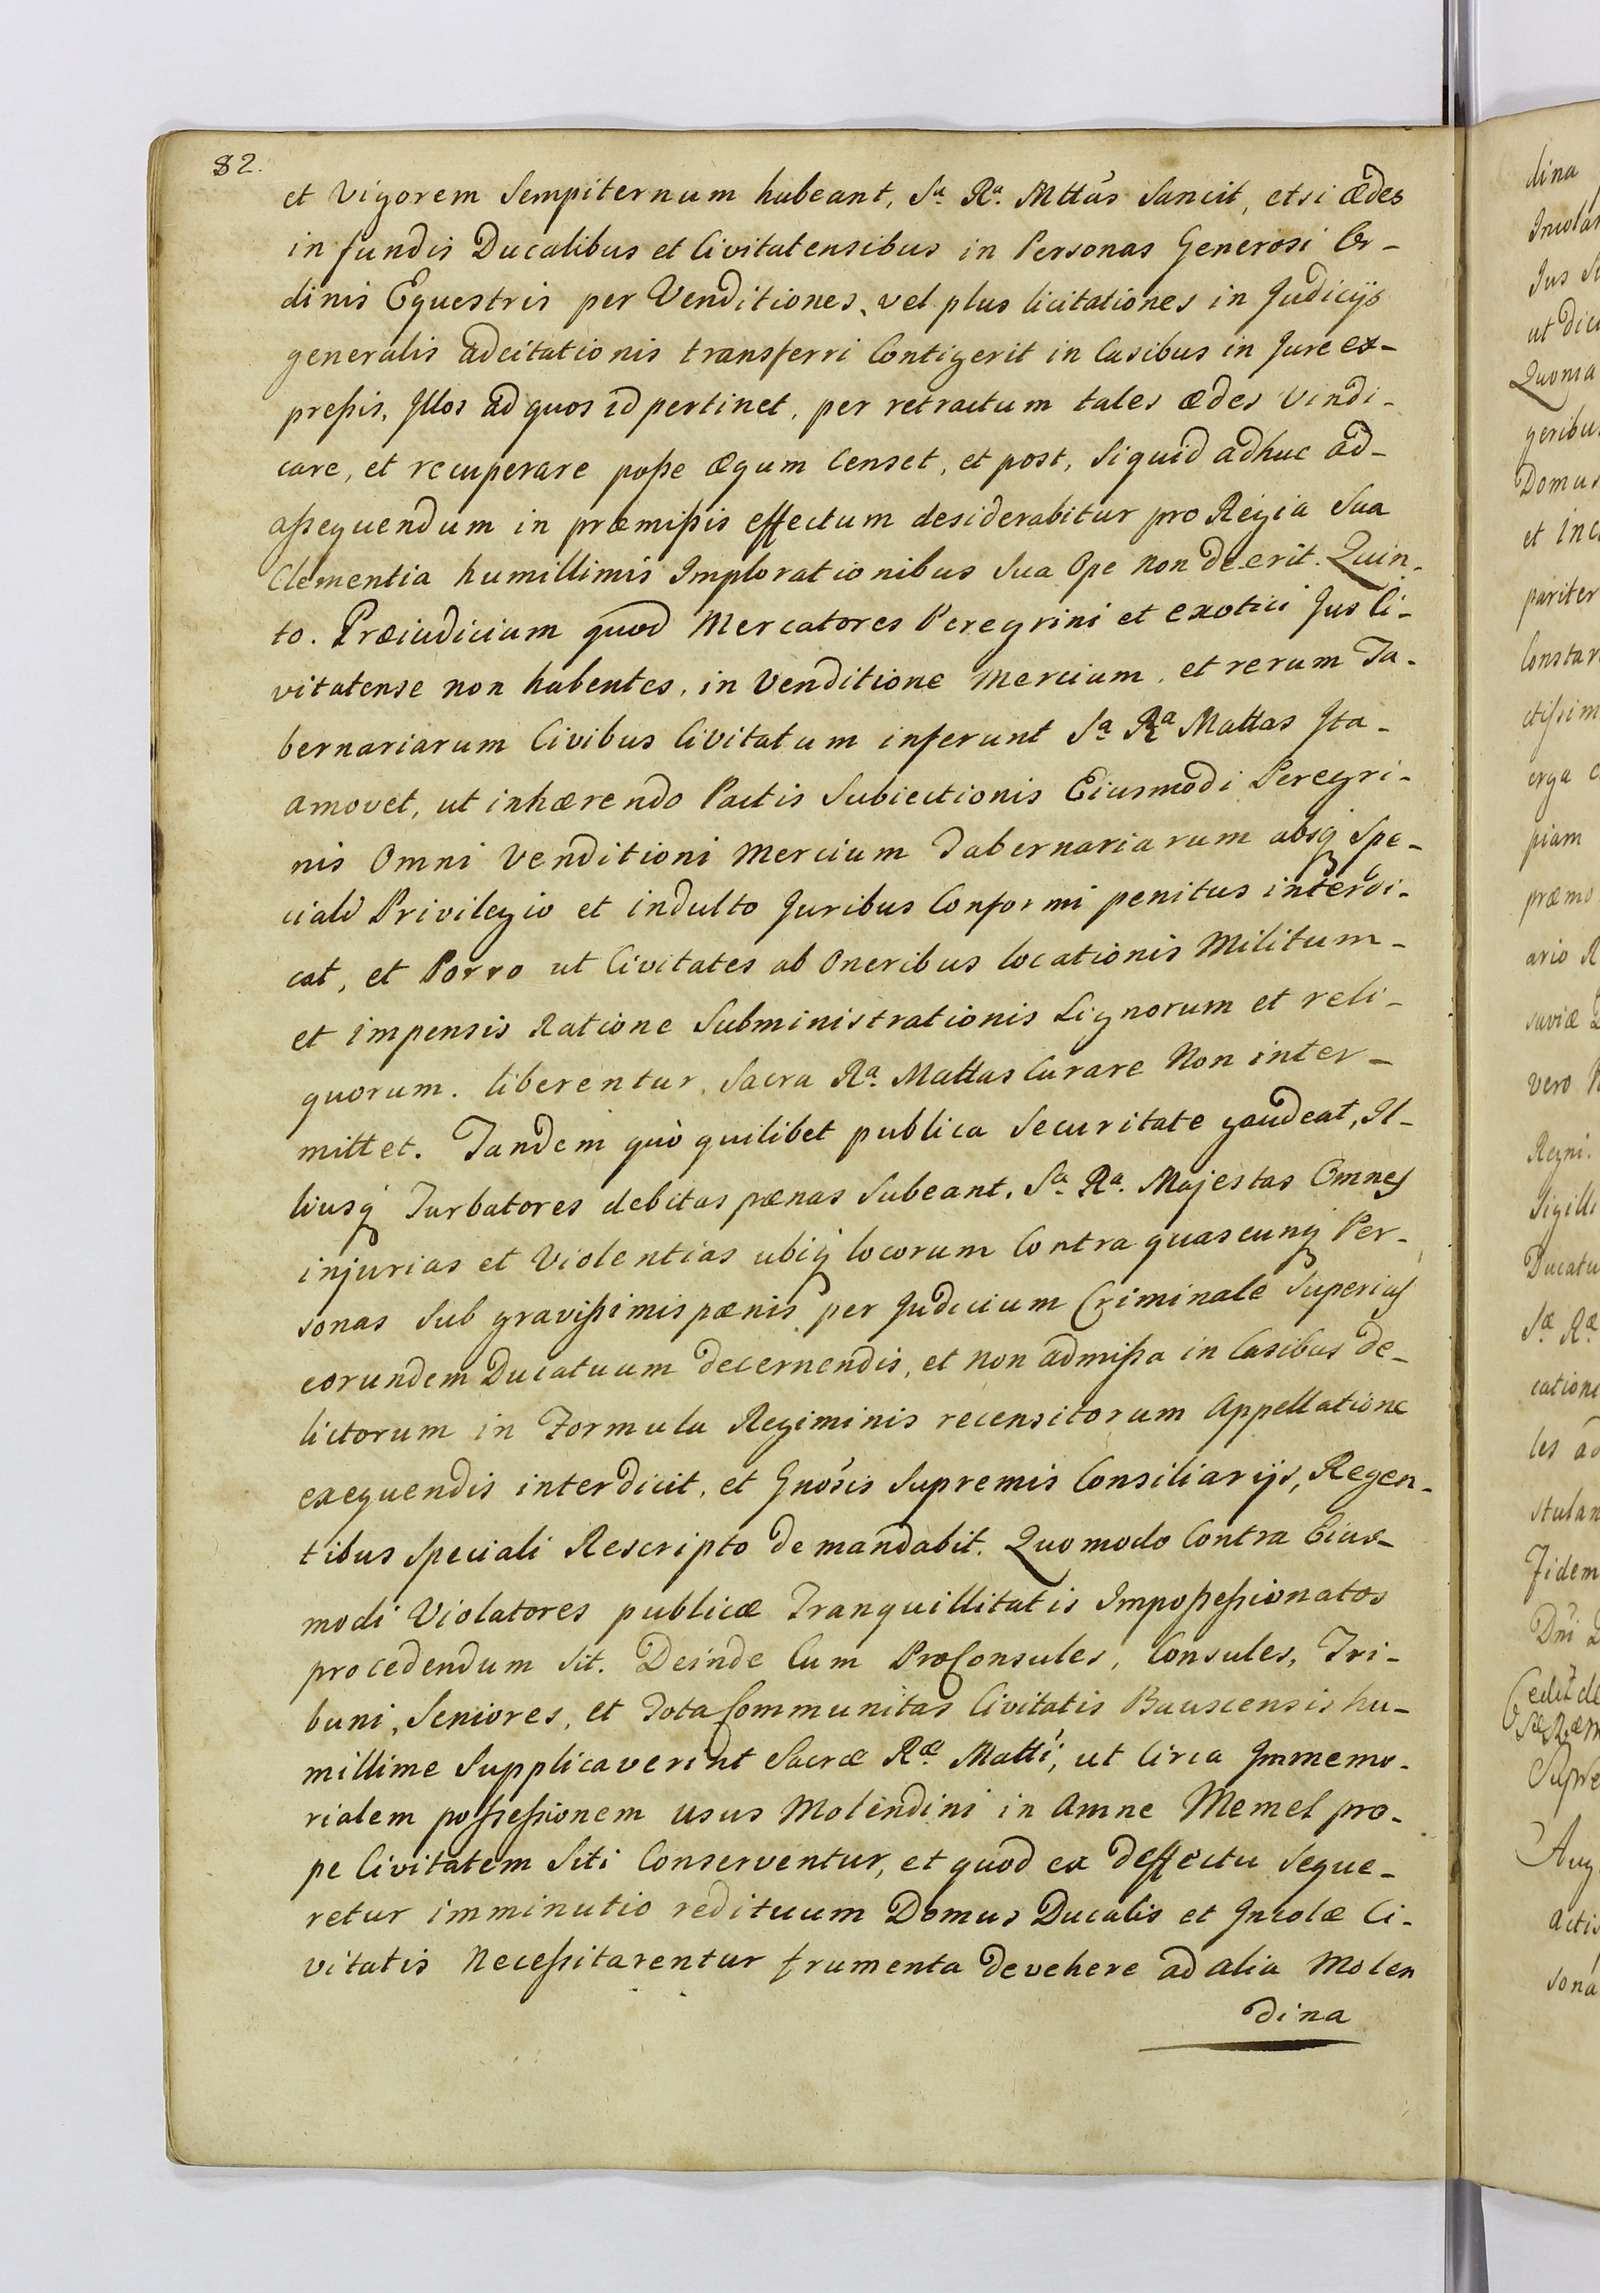 82.
et vigorem Sempiternum habeant, Sa. Ra. Mttás Sancit, etsi ædes
in fundis Ducalibus et Civitatensibus in Personas Generosi Or-
dinis Equestris per Venditiones, vel plus licitationes in Judicijs
generalis adcitationis transferri Contigerit in Casibus in Jure ex-
preßis, Jllos ad quos id pertinet, per retractum tales ædes Vindi-
care, et recuperare poße æqum Censet, et post, Siquid adhuc ad-
aßequendum in præmißis effectum desiderabitur pro Regia Sua
Clementia humillimis Implorationibus Sua Ope non deerit. Quin-
to. Præiudicium quod Mercatores Peregrini et exotici Jus Ci-
vitatense non habentes, in Venditione Mercium, et rerum Ta-
bernariarum Civibus Civitatum inferunt Sa Ra Mattas Jta-
amovet, ut inhærendo Pactis Subiectionis Eiusmodi Peregri-
nis Omni Venditioni Mercium Tabernariarum absq Spe-
ciali Privilegio et indulto Juribus Conformi penitus interdi-
cat, et Porro ut Civitates ab Oneribus locationis Militum-
et impensis Ratione Subministrationis Lignorum et reli-
quorum. liberentur, Sacra Ra. Mattas Curare Non inter-
mittet. Tandem quò quilibet publica Securitate gaudeat, Il-
liusq Turbatores debitas pœnas Subeant, Sa. Ra. Majestas Omnes
injurias et Violentias ubiq locorum Contra quascunq Per-
sonas Sub gravißimis pœnis per Judicium Criminale Superius
eorundem Ducatuum decernendis, et non admißa in Casibus de-
lictorum in Formula Regiminis recensitorum Appellatione
exequendis interdicit, et Gnósis Supremis Consiliarijs, Regen-
tibus Speciali Rescripto demandabit. Quomodo Contra Eius-
modi Violatores publicæ Tranquillitatis Impoßeßionatos
procedendum Sit. Deinde Cum ProConsules, Consules, Tri-
buni, Seniores, et Tota Communitas Civitatis Bauscensis hu-
millime Supplicaverint Sacræ Ræ. Matti, ut Circa Jmmemo-
rialem poßeßionem usus Molendini in Amne Memel pro-
pe Civitatem Siti Conserventur, et quod ex deffectu Seque-
retur imminutio redituum Domus Ducalis et Jncolæ Ci-
vitatis Neceßitarentur frumenta devehere ad alia Molen
dina
dina
ut
Quonia
Domus
pariter
erga
piam
vero
Regni.
Sigilli
Sæ Ræ
Fidem